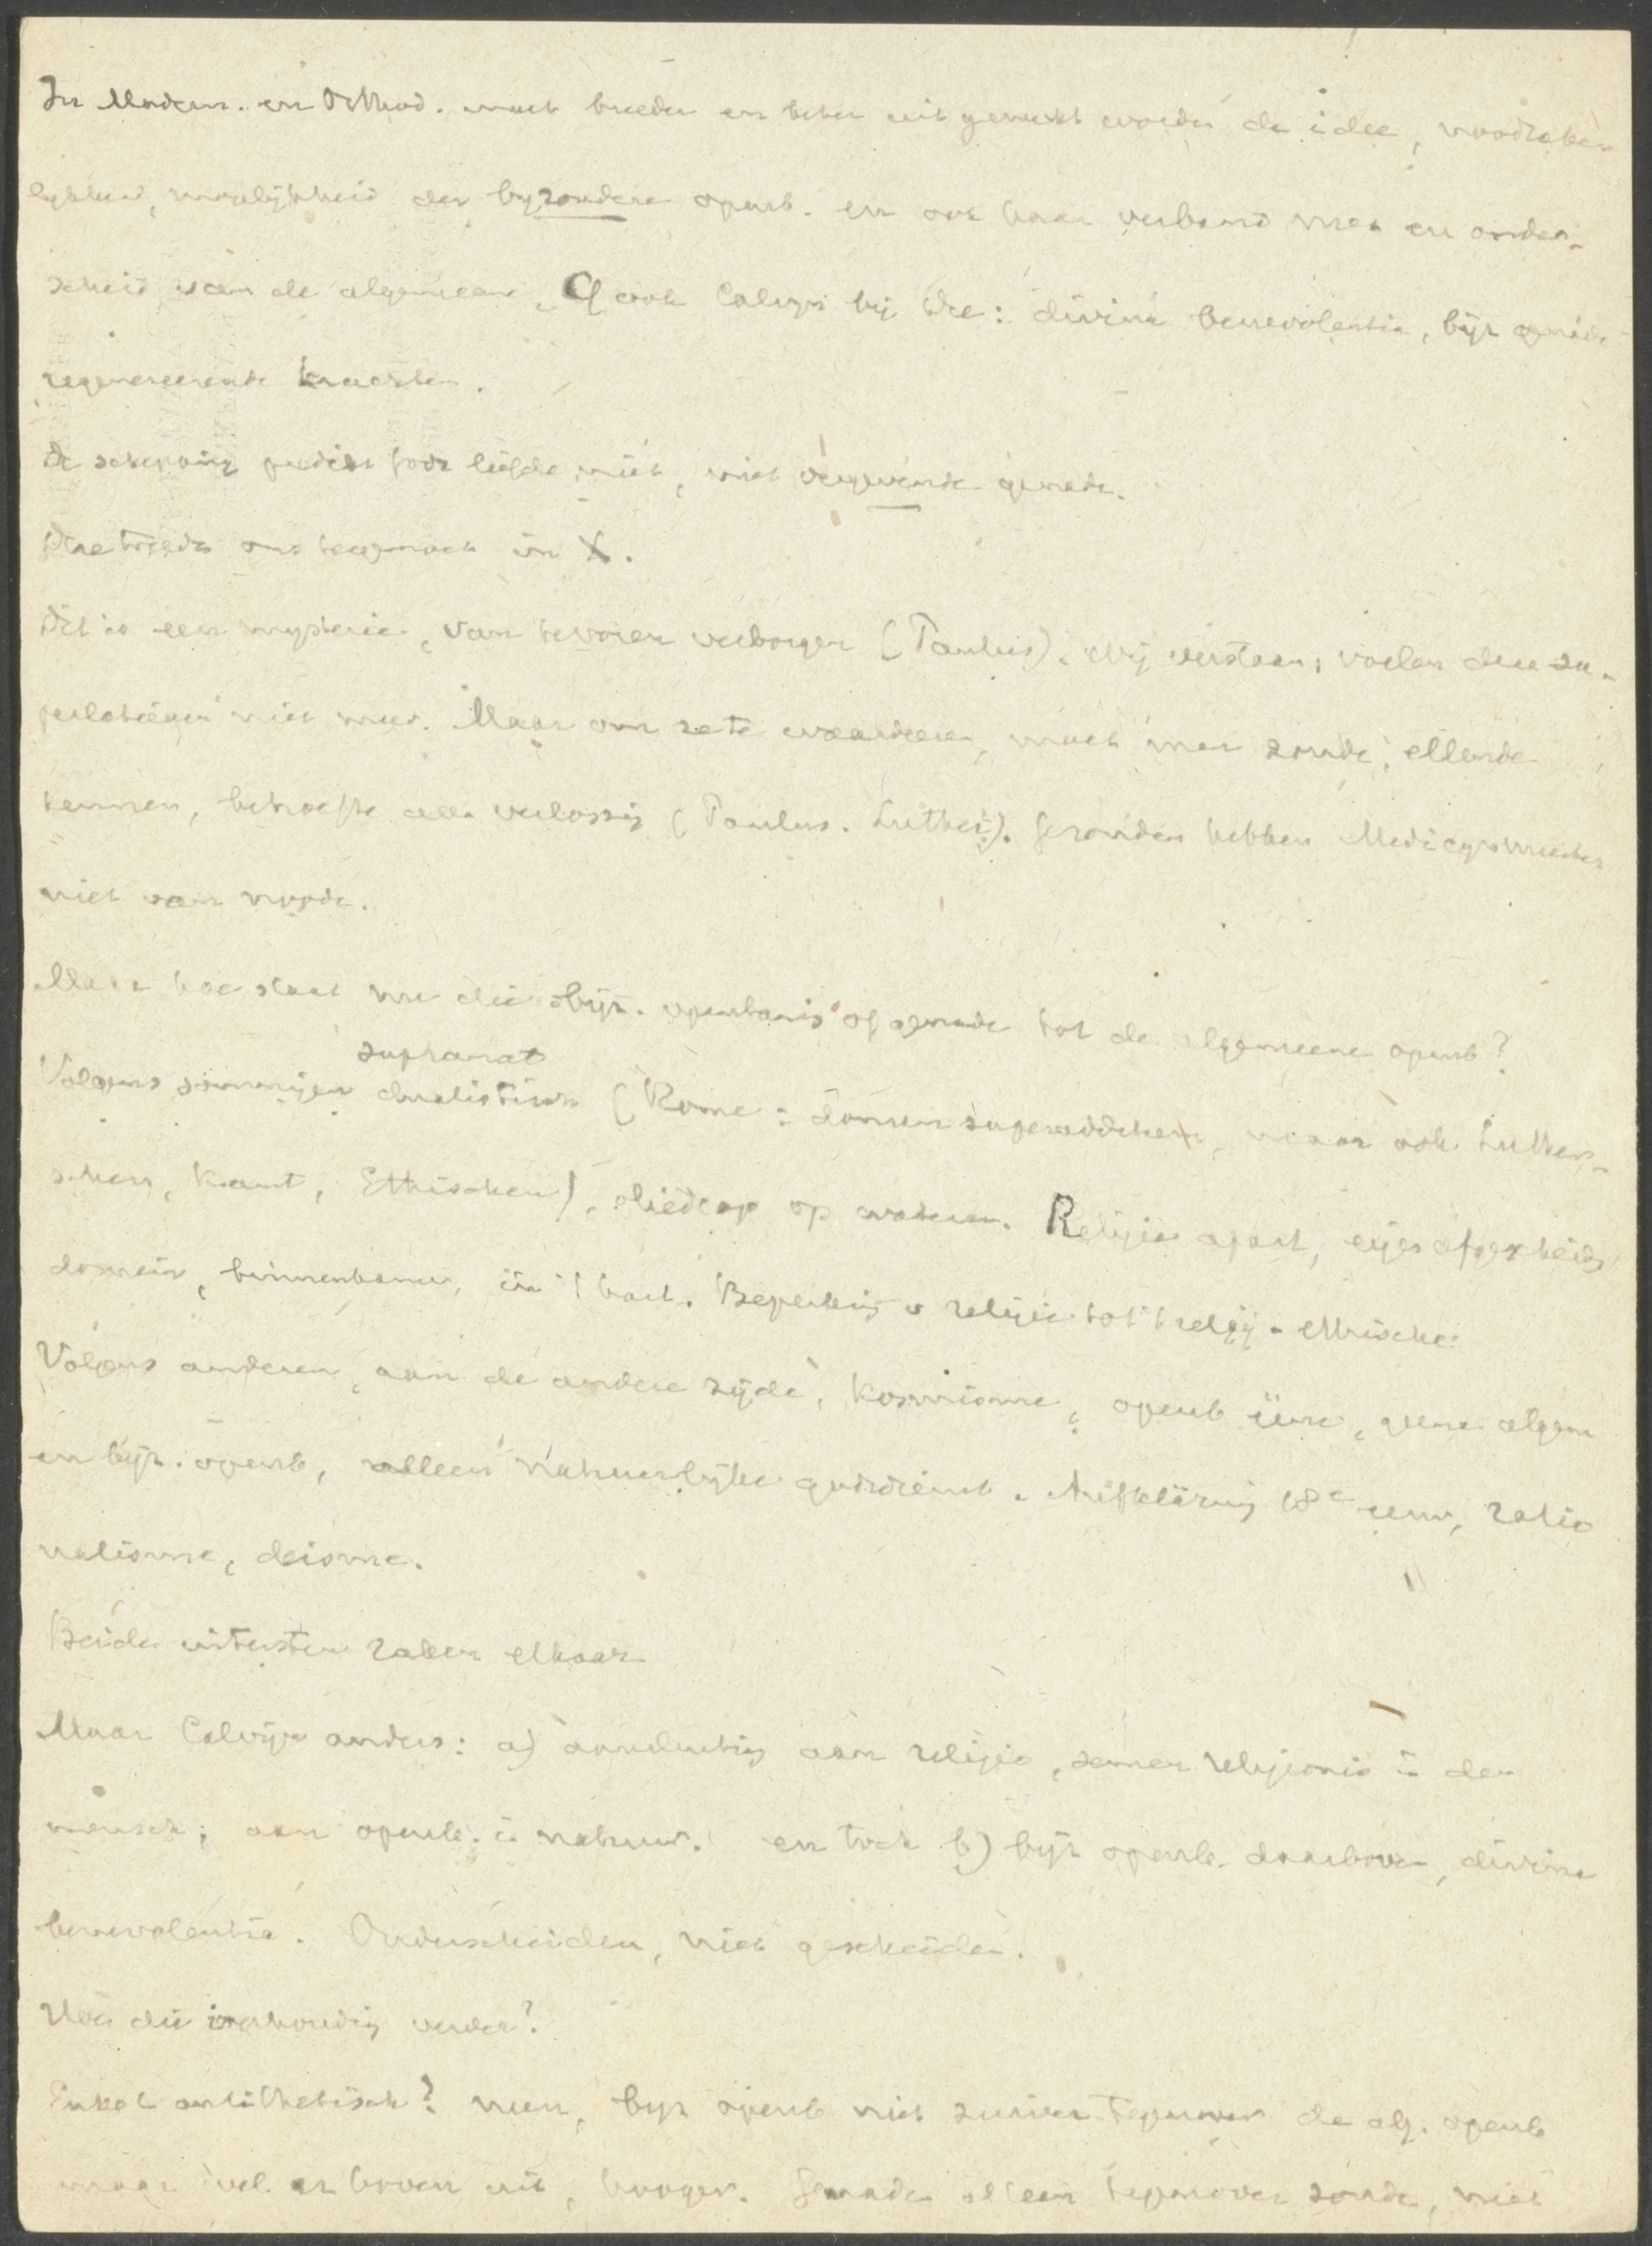 In Modern. en Orthod. moet breeder en beter uitgewerkt worden de idee, noodzake-
lijkheid, mogelijkheid der byzondere openb. en ook haar verband met en onder-
scheid van de algemeene. Cf ook Calvyn bij Tre: divina benevolentia, bijz genade
regenereerende krachten.
De schepping predikt Gods liefde niet, niet vergevende genade.
Die treedt ons tegemoet in X.
Dit is een mysterie, van tevoren verborgen (Paulus). Wij verstaan, voelen dien su-
perlatieven niet meer. Maar om ze te waardeeren, moet men zonde, ellende
kennen, behoefte aan verlossing (Paulus. Luther). Gezonden hebben Medicynmeester
niet van noode.
Maar hoe staat nu die bijz. openbaring of genade tot de algemeene openb?
supranat
Volgens sommigen dualistisch (Rome: donum superadditum, maar ook Luther-
schen, Kant, Ethischen), oliedrop op water. Religie apart, eigen afgescheiden
domein, binnenkamer, in 't hart. Beperking v religie tot 't relig.-ethische
Volgens anderen, aan de andere zijde, kosmisme, openb één, geene algem
en bijz. openb, alleen natuurlijke godsdienst. Aufklärung 18e eeuw, ratio
nalisme, deisme.
Beide uitersten raken elkaar
Maar Calvijn anders: a) aansluiting aan religie, semen religionis in den
mensch; aan openb. in natuur. en toch b) bijz openb. daarboven, divina
benevolentia. Onderscheiden, niet gescheiden.
Hoe die verhouding verder?
Enkel antithetisch? neen, byz openb niet zuiver tegenover de alg. openb
maar wel er boven uit, hooger. Genade alleen tegenover zonde, niet